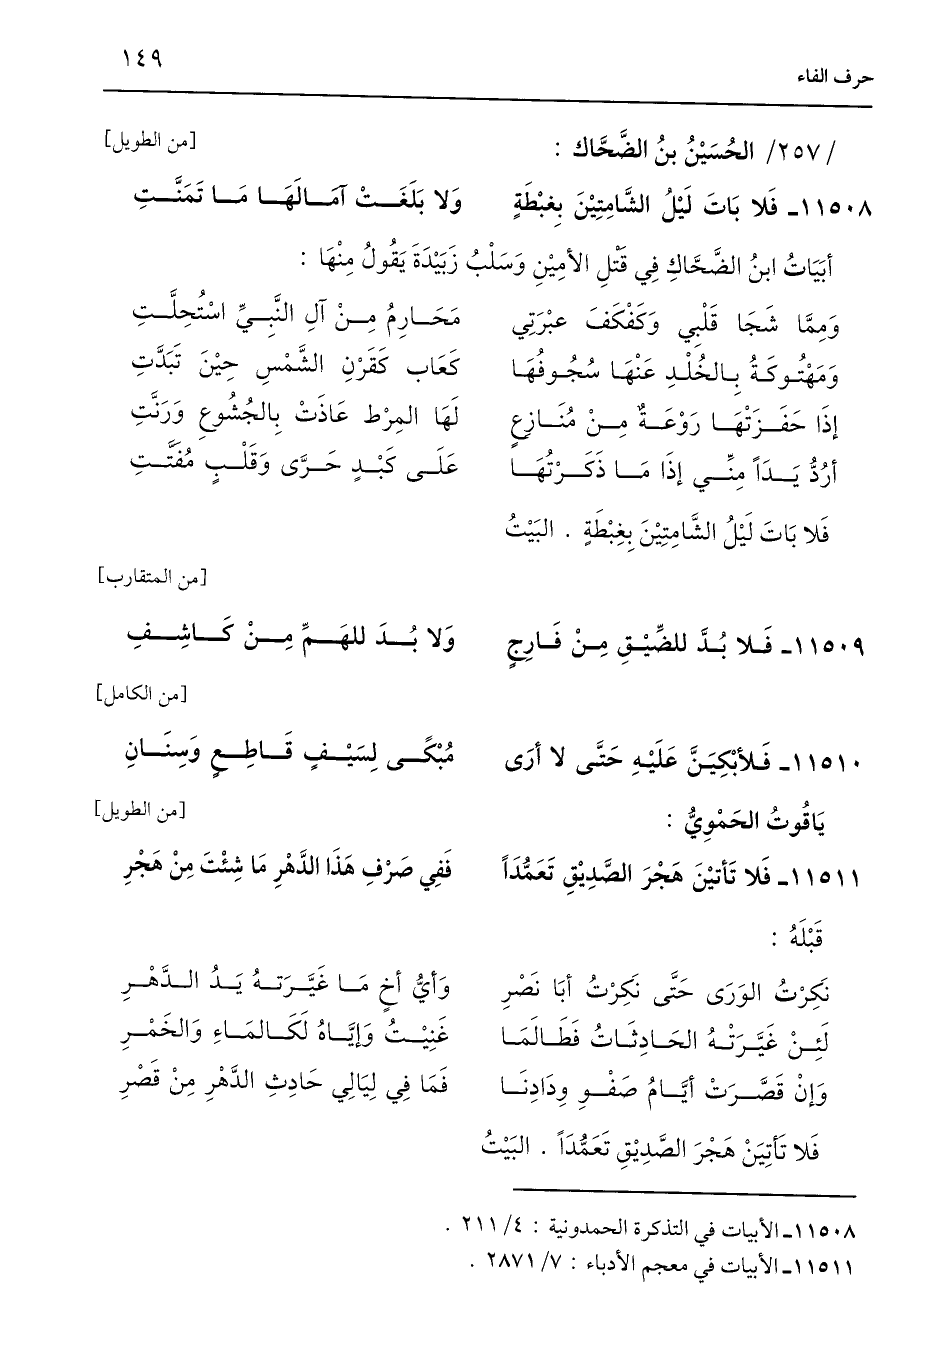 ١٤٩
حرف الفاء
/٢٥٧/ الحُسَيْنُ بنُ الضَّحَّاك : [من الطويل]
١١٥٠٨ـ فَلا بَاتَ لَيْلُ الشَّامِتِيْنَ بِغِبْطَةٍ وَلا بَلَغَـــتْ آمَــالَهَــا مَــا تَمَنَّــتِ
أبيَاتُ ابنُ الضَّحَّاكِ فِي قَتْلِ الأمِيْنِ وَسَلْبُ زبَيْدَةَ يَقُولُ مِنْهَا :
وَمِمَّا شَجَا قَلْبِي وَكَفْكَفَ عبْرَتِي مَحَــارِمُ مِــنْ آلِ النَّبِــيِّ اسْتُحِلَّــتِ
وَمَهْتُوكَـةُ بِـالخُلْـدِ عَنْهَا سُجُـوفُهَـا كَعَاب كَقَرْنِ الشَّمْسِ حِيْنَ تَبَدَّتِ
إذَا حَفَــزَتْهَــا رَوْعَــةٌ مِــنْ مُنَــازِعٍ لَهَا المِرْط عَاذَتْ بِالخُشُوعِ وَرَنَّتِ
أرُدُّ يَــداً مِنِّــي إذَا مَــا ذَكَــرْتُهَــا عَلَــى كَبْــدٍ حَــرَّى وَقَلْــبٍ مُفَتَّــتِ
فَلا بَاتَ لَيْلُ الشَّامِتِيْنَ بِغِبْطَةٍ . البَيْتُ
[من المتقارب]
١١٥٠٩ـ فَــلا بُــدَّ للضِّيْــقِ مِــنْ فَــارِجٍ وَلا بُــدَ للهَــمِّ مِــنْ كَــاشِــفِ
[من الكامل]
١١٥١٠ـ فَـلأبْكِيَـنَّ عَلَيْـهِ حَتَّـى لا أرَى مُبْكًــى لِسَيْــفٍ قَــاطِــعٍ وَسِنَــانِ
يَاقُوتُ الحَمْوِيُّ : [من الطويل]
١١٥١١ـ فَلا تَأتيْنَ هَجْرَ الصَّدِيْقِ تَعَمُّدَاً فَفِي صَرْفِ هَذَا الدَّهْرِ مَا شِئْتَ مِنْ هَجْرِ
قَبْلَهُ :
نَكِرْتُ الوَرَى حَتَّى نَكِرْتُ أبَا نَصْرِ وَأيُّ أخٍ مَــا غَيَّــرَتــهُ يَــدُ الــدَّهْــرِ
لَئِــنْ غَيَّــرَتْــهُ الحَــادِثَــاتُ فَطَــالَمَــا غَنِيْــتُ وَإيَّــاهُ لَكَــالمَــاءِ وَالخَمْــرِ
وَإنْ قَصَّــرَتْ أيَّــامُ صَفْــوِ وِدَادِنَــا فَمَا فِي لِيَالِي حَادِثِ الدَّهْرِ مِنْ قَصْرِ
فَلا تَأتِيَنْ هَجْرَ الصَّدِيْقِ تَعَمُّدَاً . البَيْتُ
١١٥٠٨ـ الأبيات في التذكرة الحمدونية : ٤/ ٢١١ .
١١٥١١ـ الأبيات في معجم الأدباء : ٧/ ٢٨٧١ .